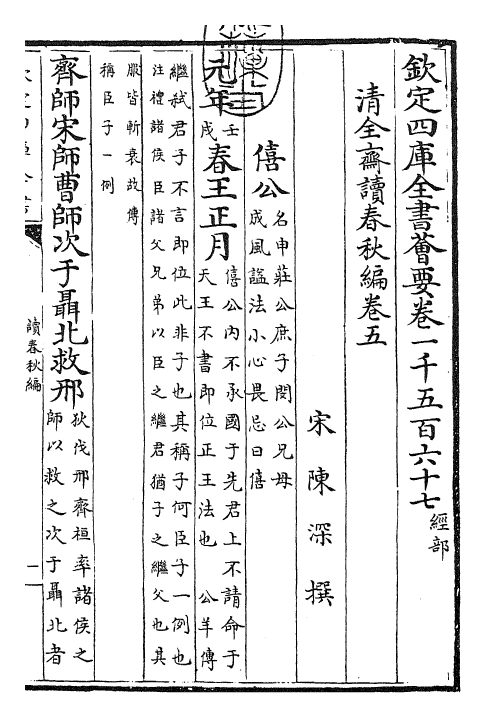 欽定四庫全書薈要卷一千五百六十七 經部
清全齋讀春秋編卷五
宋 陳 深 撰
僖公 名申莊公庶子閔公兄母
成風諡法小心畏忌曰僖
元年 壬
戌
春王正月 僖公內不承國于先君上不請命于
天王不書即位正王法也 公羊傳
繼弑君子不言即位此非子也其稱子何臣子一例也
注禮諸侯臣諸父兄弟以臣之繼君猶子之繼父也其
服皆斬衰故傳
稱臣子一例
齊師宋師曹師次于聶北救邢 狄伐邢齊桓率諸侯之
師以救之次于聶北者
讀春秋編
一